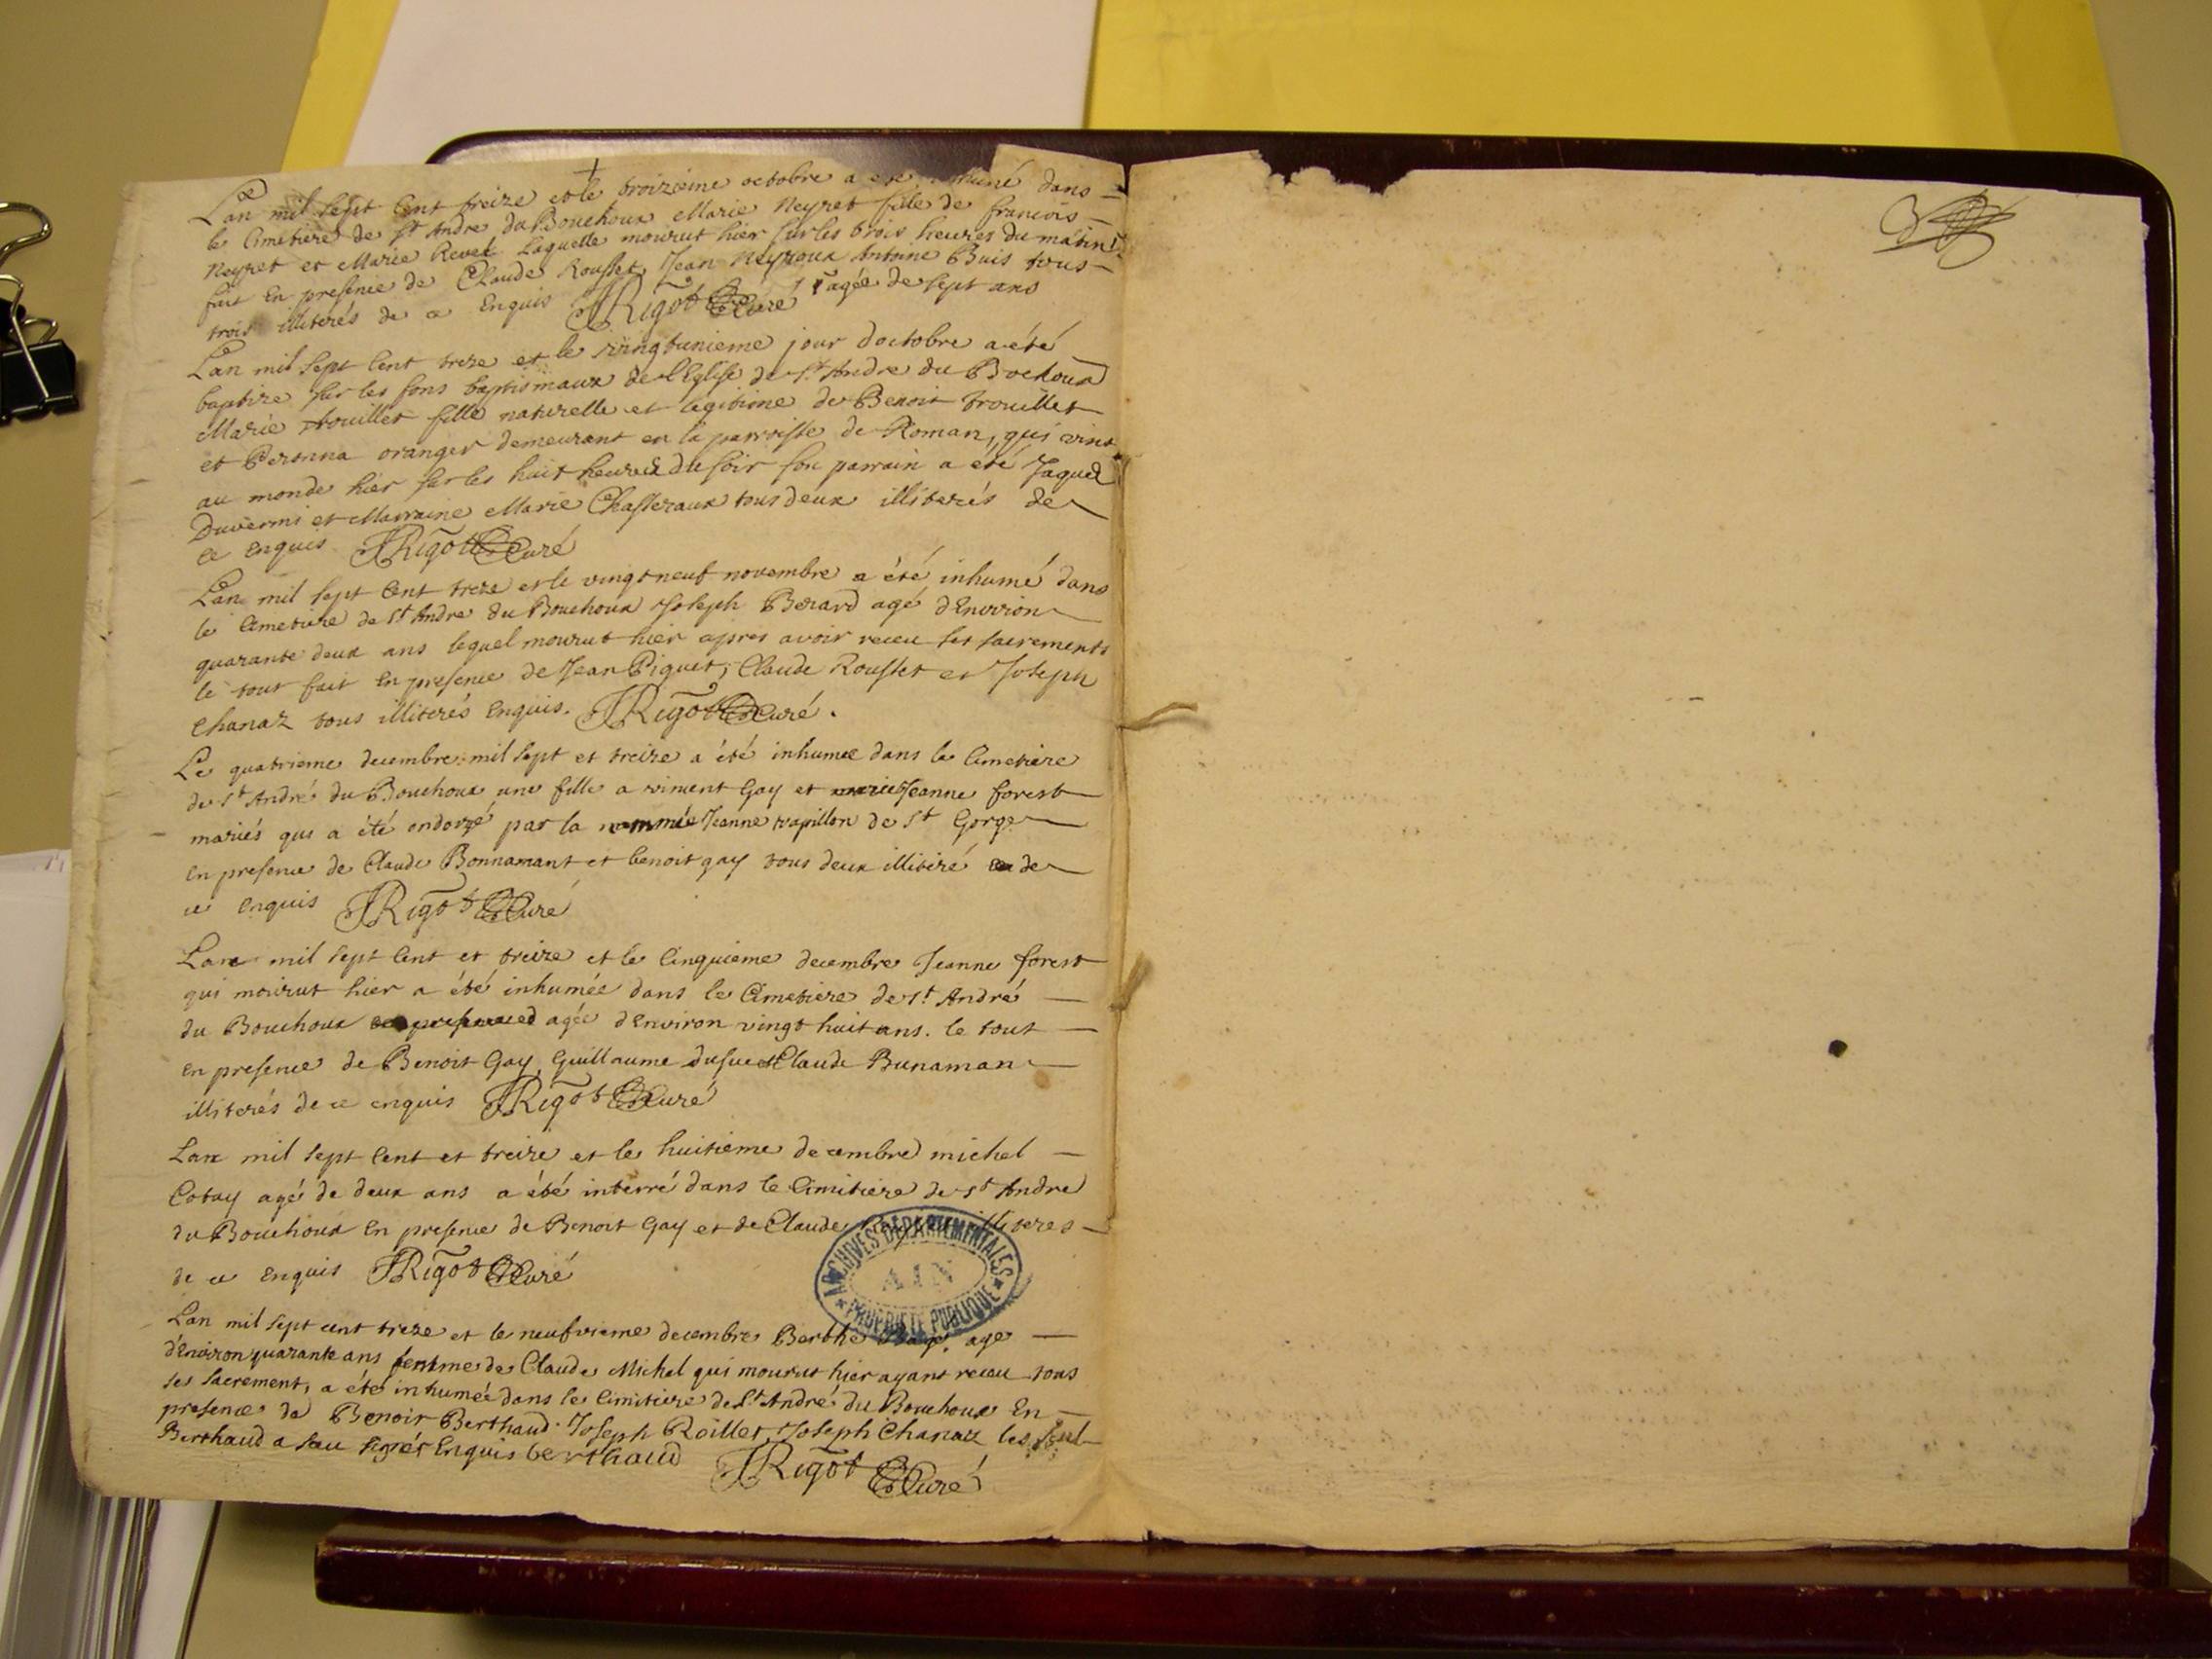 Lan mil sept cent treize et le troizieme octobre a été inhumé dans
le Cimetiere de St Andre du Bouchoux Marie Neyret fille de francois
Neyret et Marie Revet Laquelle mourut hier sur les trois heures du matin
fait En presence de Claude Rousset, Jean Neyroux Antoine Buis tous
trois illiterés de ce Enquis JRigot Curé agée de sept ans
Lan mil sept cent treze et le vingtunieme jour doctobre a été
baptize sur les fons baptismaux de lEglise de St Andre du Bochoux
Marie trouillet fille naturelle et legitime de Benoit trouillet
et Peronna oranger demeurant en la parroisse de Roman, qui vint
au monde hier sur les huit heures du soir son parrain a eté Jaques
Duvermi et Marraine Marie Chasseraux tous deux illiterés de
ce enquis JRigot Curé
Lan mil sept Cent treze et le vingtneuf novembre a été inhumé dans
le Cimetiere de St Andre du Bouchoux Joseph Berard agé dEnviron
quarante deux ans lequel mourut hier apres avoir receu ses sacrements
le tout fait En presence de Jean Piquet, Claude Rousset et Joseph
Chanaz tous illiterés Enquis. JRigot Curé.
Le quatrieme decembre mil sept et treize a été inhumee dans le Cimetiere
de St André du Bouchoux une fille a vincent Gay et Jeanne forest
mariés qui a été ondoyé par la nommée Jeanne trapillon de St Gorge
En presence de Claude Bonnamant et benoit gay tous deux illiteré de
ce Enquis JRigot Curé
Lan mil sept Cent et treize et le Cinquieme decembre Jeanne forest
qui mourut hier a été inhumée dans le Cimetiere de St André
du Bouchoux agée dEnviron vingt huit ans. le tout
En presence de Benoit Gay, Guillaume dusuc et Claude Bunaman
illiterés de ce enquis JRigot Curé
Lan mil sept Cent et treize et le huitieme decembre michel
Cotay agé de deux ans a été interré dans le Cimitiere de St Andre
du Bouchoux En presence de Benoit Gay et de Claude illiteres
de ce Enquis JRigot Curé
ARCHIVES DÉPARTEMENTALES
AIN
PROPRIÉTÉ PUBLIQUE
Lan mil sept cent treze et le neufvieme decembre Berthe age
dEnviron quarante ans femme de Claude Michel qui mourut hier ayant receu tous
ses sacrement, a été inhumée dans le Cimitiere de St André du Bouchoux En
presence de Benoit Berthaud Joseph Roillet, Joseph Chanaz les seul
Berthaud a sau signér Enquis berthaud
JRigot Curé